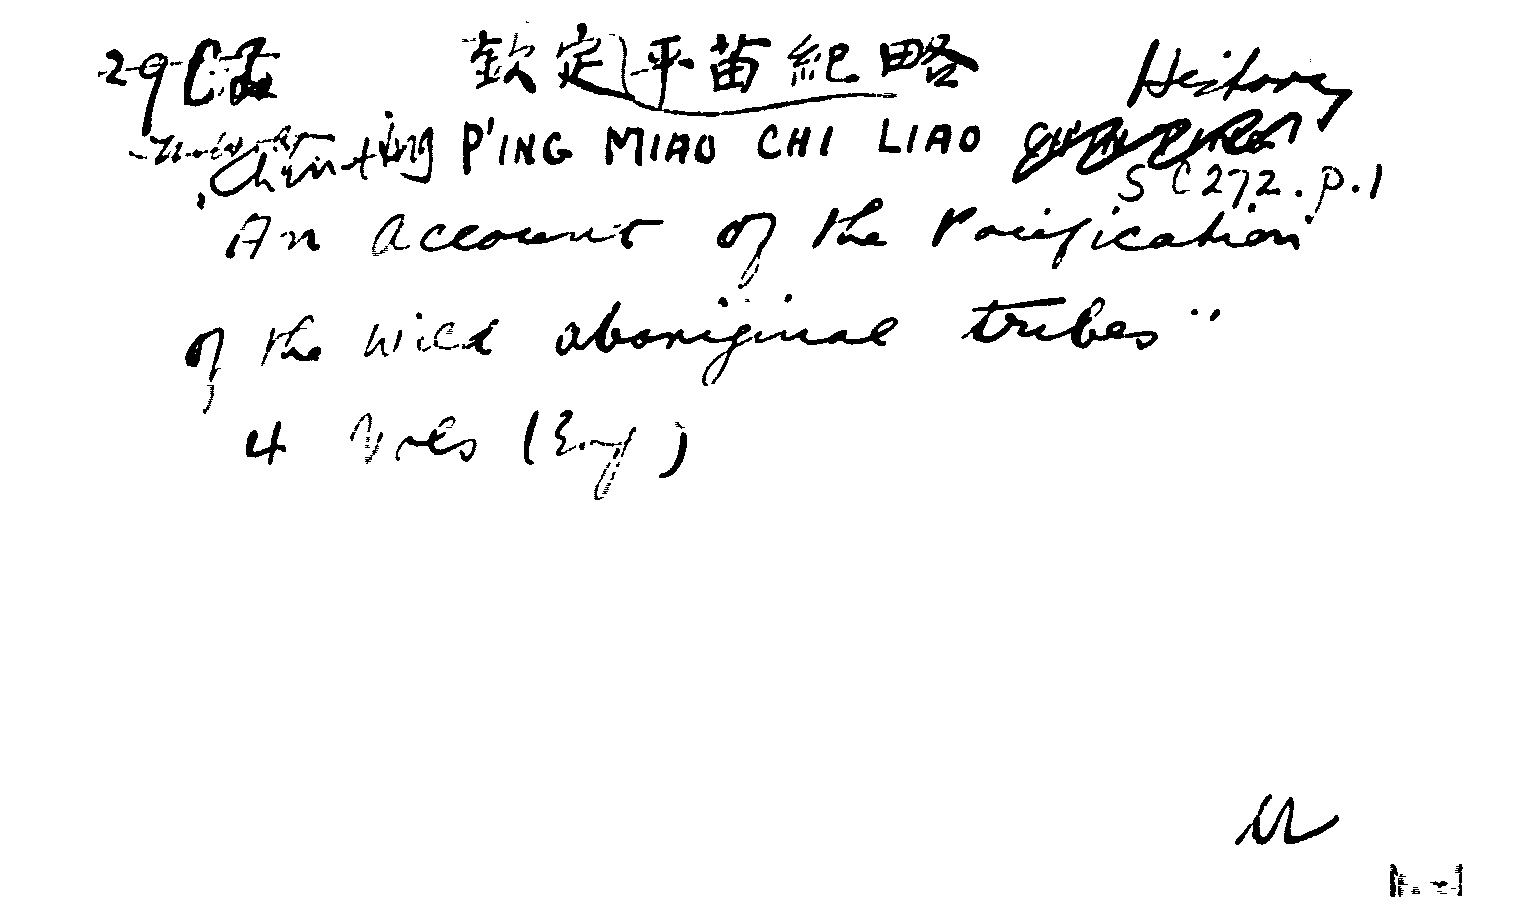 欽定平苗紀略 History
Chin-ting P'ING MIAO CHI LIAO
SC272.p.1
"An account of the Pacification
of the wild aboriginal tribes"
4 Vols (Eng)